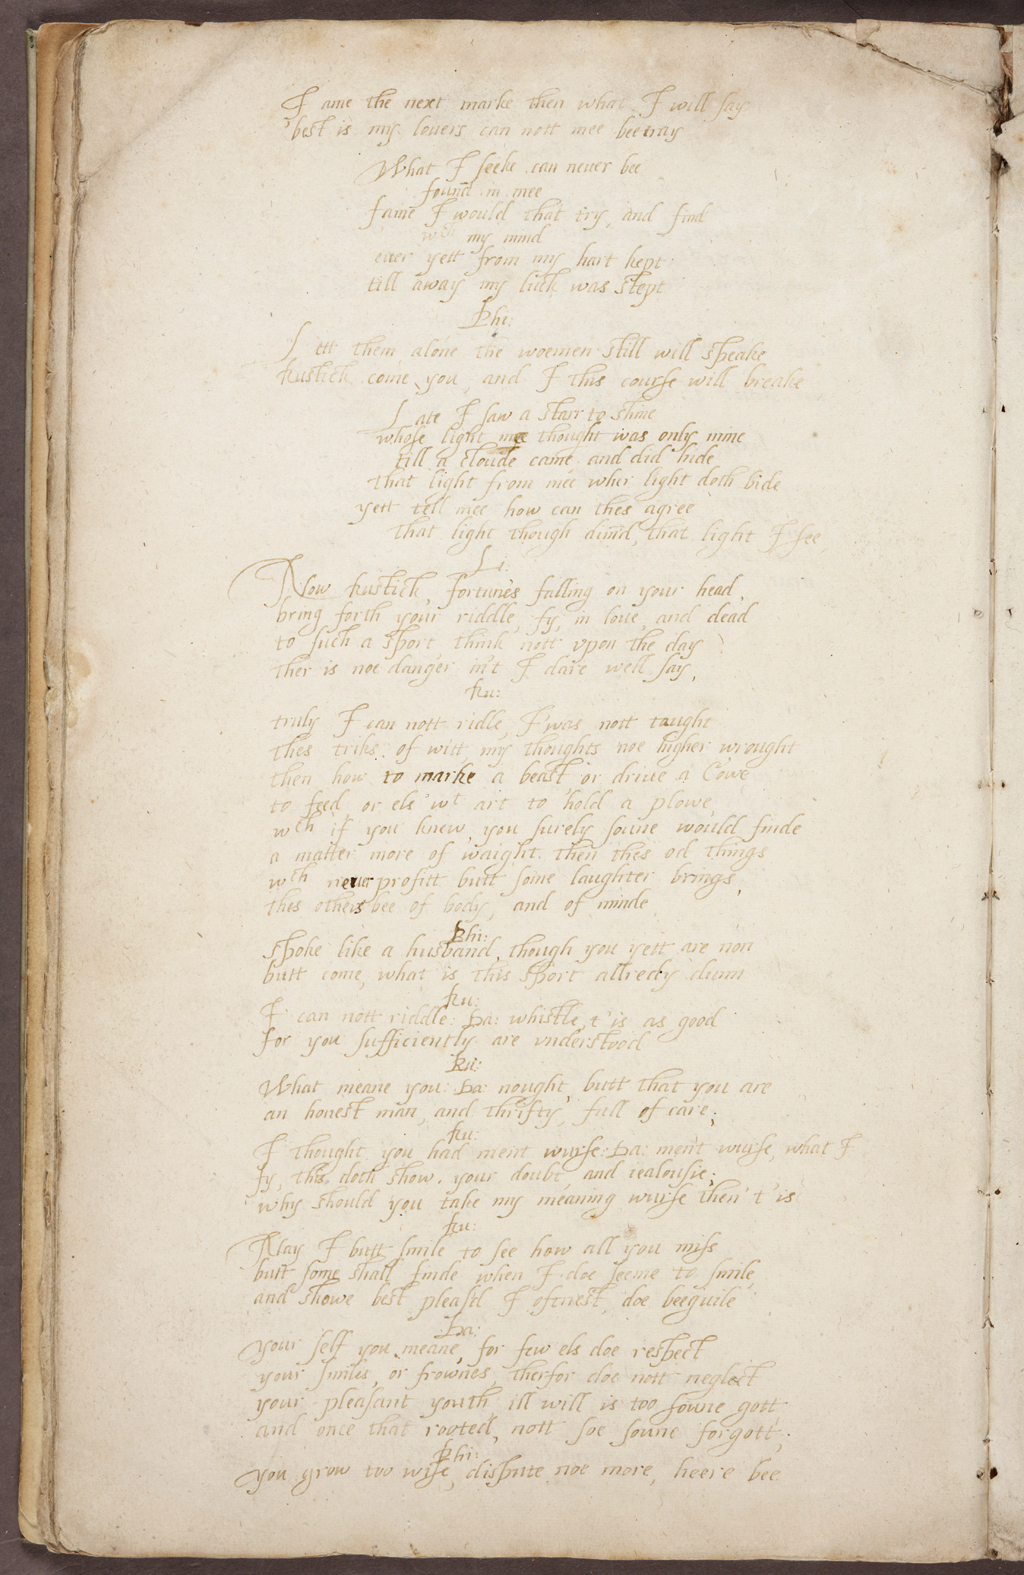 I ame the next marke then what I will say
best is my louers can nott mee beetray
What I seeke can never bee
found in mee
faine I would that try, and find
wth my mind
ever yett from my hart kept
till away my luck was stept
Phi:
Lett them alone the woemen still will speake
Rustick come you, and I this course will breake
Late I saw a starr to shine
whose light mee thought was only mine
till a cloude came and did hide
that light from mee wher light doth bide
yett tell mee how can thes agree
that light though dimd, that light I see
Li:
Now Rustick, fortune's falling on your head,
bring forth your riddle, fy, in loue, and dead
to such a sport, think nott vpon the day
ther is noe danger in't I dare well say,
Ru:
truly I can nott ridle, I was nott taught
thes triks of witt my thoughts noe higher wrought
then how to marke a beast or drive a Cowe
to feed, or els wt art to hold a plowe
wch if you knew, you surely soone would finde
a matter more of waight then thes od things
wch never profitt butt some laughter brings,
thes others bee of body, and of minde
Phi:
spoke like a husband, though you yett are non
butt come, what is this sport allredy dunn
Ru:
I can nott riddle: Da: whistle, t'is as good
for you sufficiently are understood
Ru:
What meane you: Da: nought, butt that you are
an honest man, and thrifty, full of care;
Ru:
I thought you had ment wurse: Da: ment wurse, what I
fy, this doth show your doubt, and iealousie;
why should you take my meaning wurse then t'is
Ru:
Nay I butt smile to see how all you miss
butt some shall finde when I doe seeme to smile
and showe best pleasd I oftnest doe beeguile
Da:
your self you meane, for few els doe respect
your smiles, or frownes, therfor doe nott neglect
your pleasant youth, ill will is too soune gott
and once that rooted, nott soe soune forgott;
Phi:
you grow too wise, dispute noe more, heere bee